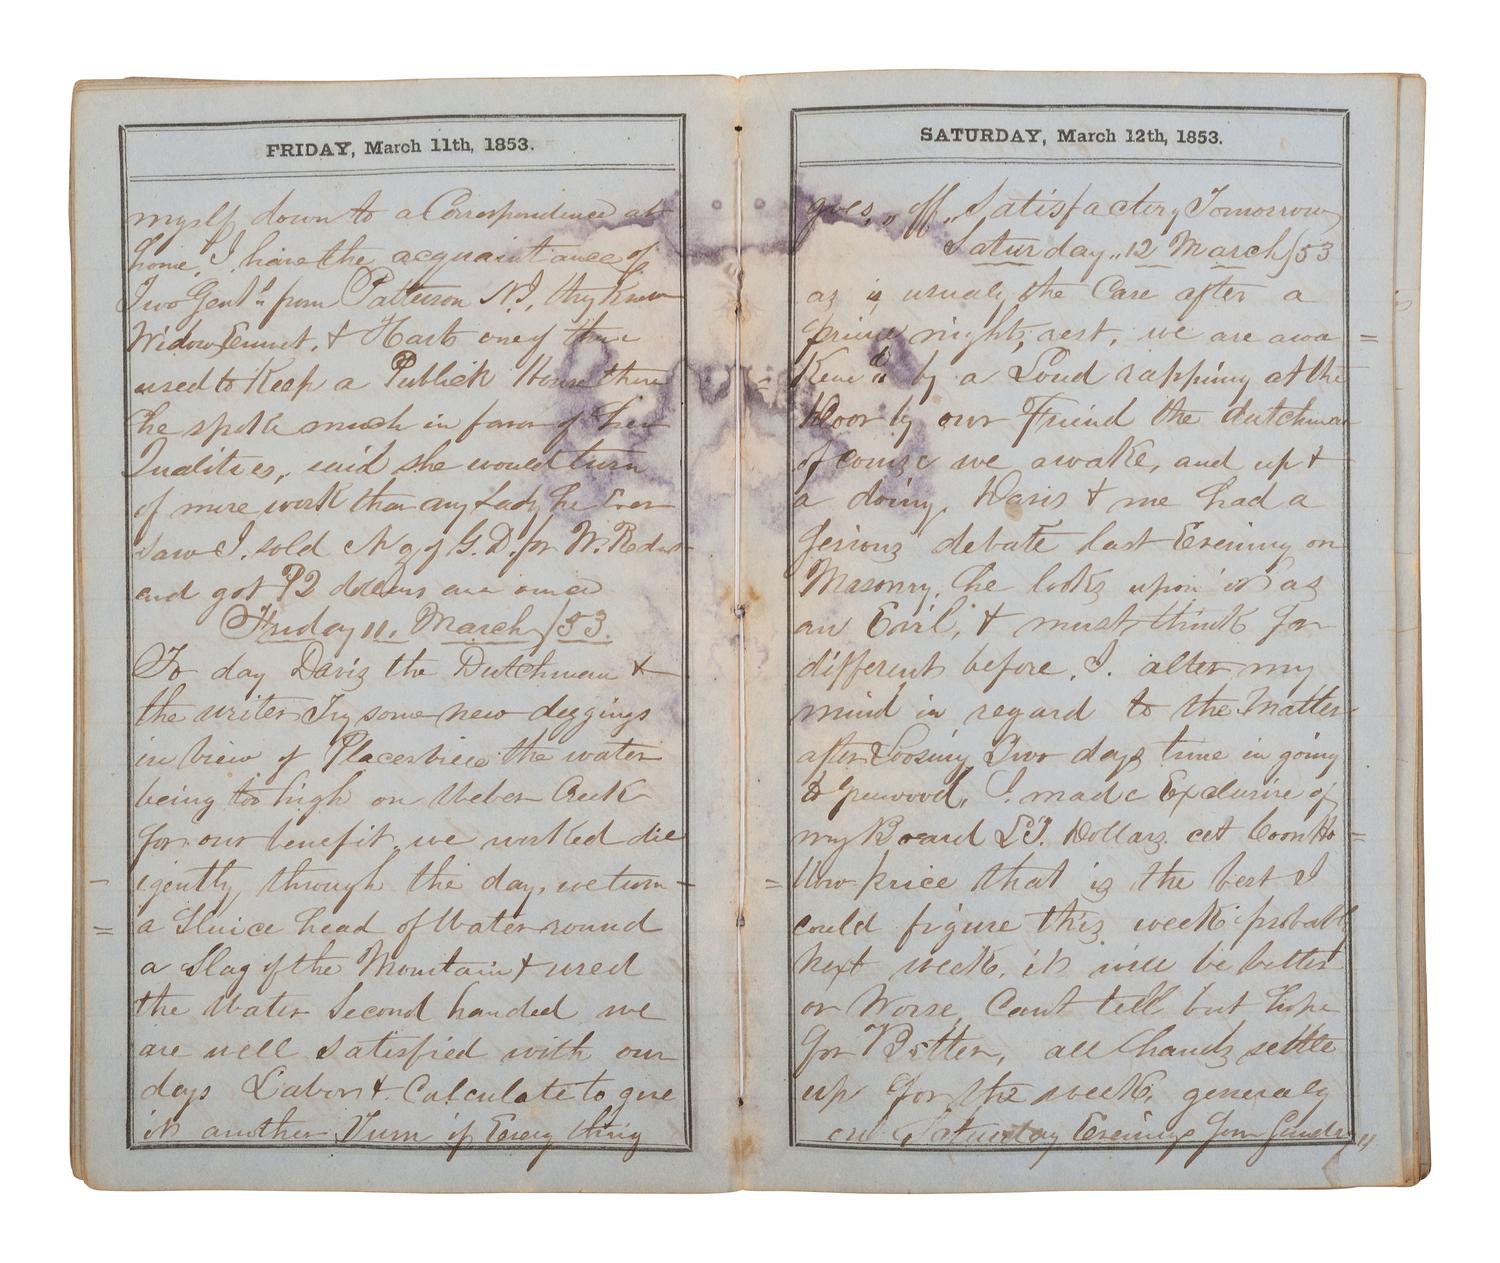 FRIDAY, March 11th, 1853.
myself down to a Correspondence at
home, I have the acquaintance of
Two Gent's from Patterson N.J, they Know
Widow Emmet, & Harb one of them
used to Keep a Publick House there
he spoke much in favor of her
Qualities, said she would turn
of more work than any Lady he Ever
saw I. sold of G.D. for W.
and got 92
Friday 11, March /53.
To day Davis the Dutchman &
the writer Try some new diggings
in view of Placerville the water
being too high on Weber Creek
for our benefit, we worked dil
igently through the day, we turn
a Sluice head of Water round
a Slag of the Mountain & used
the Water Second handed we
are well satisfied with our
days Labor & Calculate to give
it another Turn if Every thing
SATURDAY, March 12th, 1853.
goes, off, Satisfactory Tomorrow
Saturday, 12 March /53
as is usualy the Case after a
nights rest, we are awa =
Kene'd by a Loud rapping at the
Door by our Friend the dutchman
of course we awake, and up &
a doing, Davis & me had a
serious debate last Evening on
Masonry, he looks upon it as
an Evil, & must think far
different before, I. alter my
mind in regard to the Matter
after Loosing Two days time in going
to Greenwood, I. made Exclusive of
my Board Dollars at
= price that is the best I
could figure this week probabl
next week, it will be better
or Worse, Cant tell but hope
for Better, all hands settle
up for the week, generaly
on Saturday Evenings